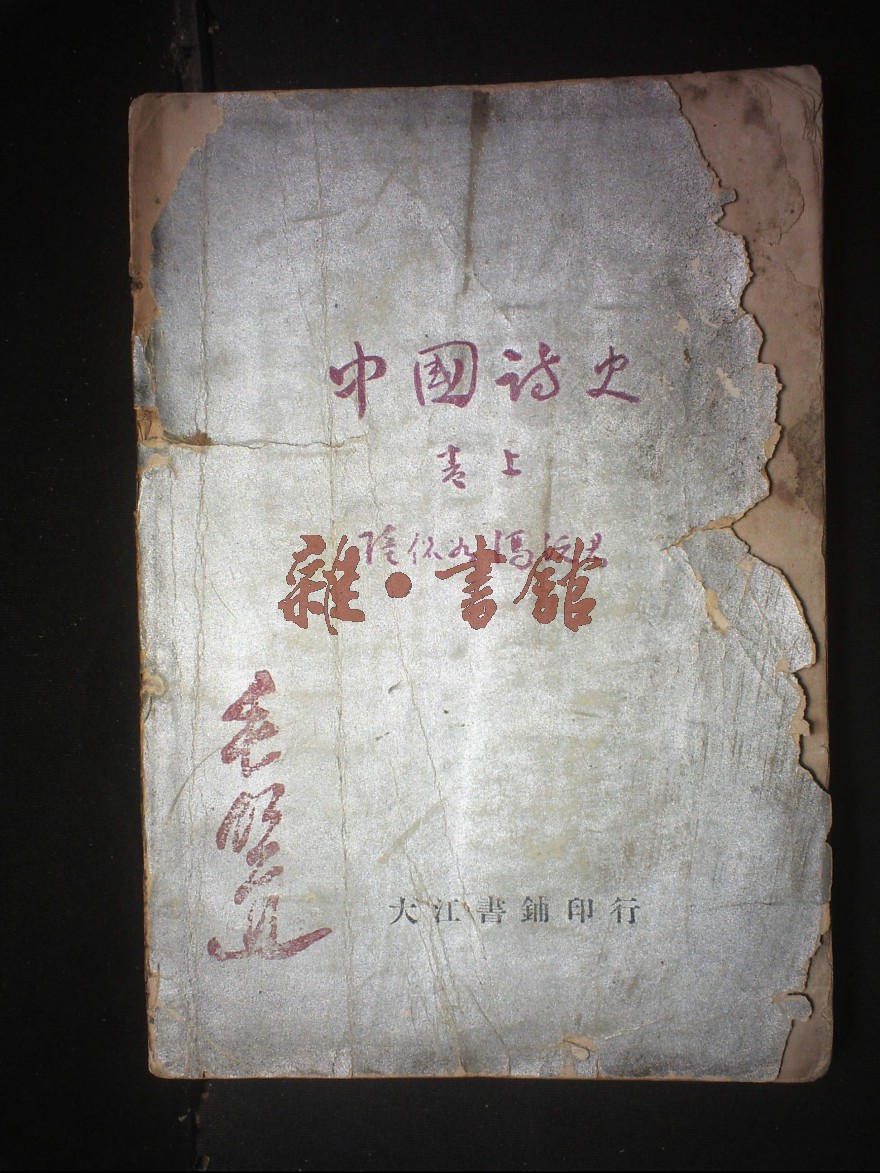 中國詩史
卷上
陸侃如 馮沅君
雜·書館
毛
大江書鋪印行